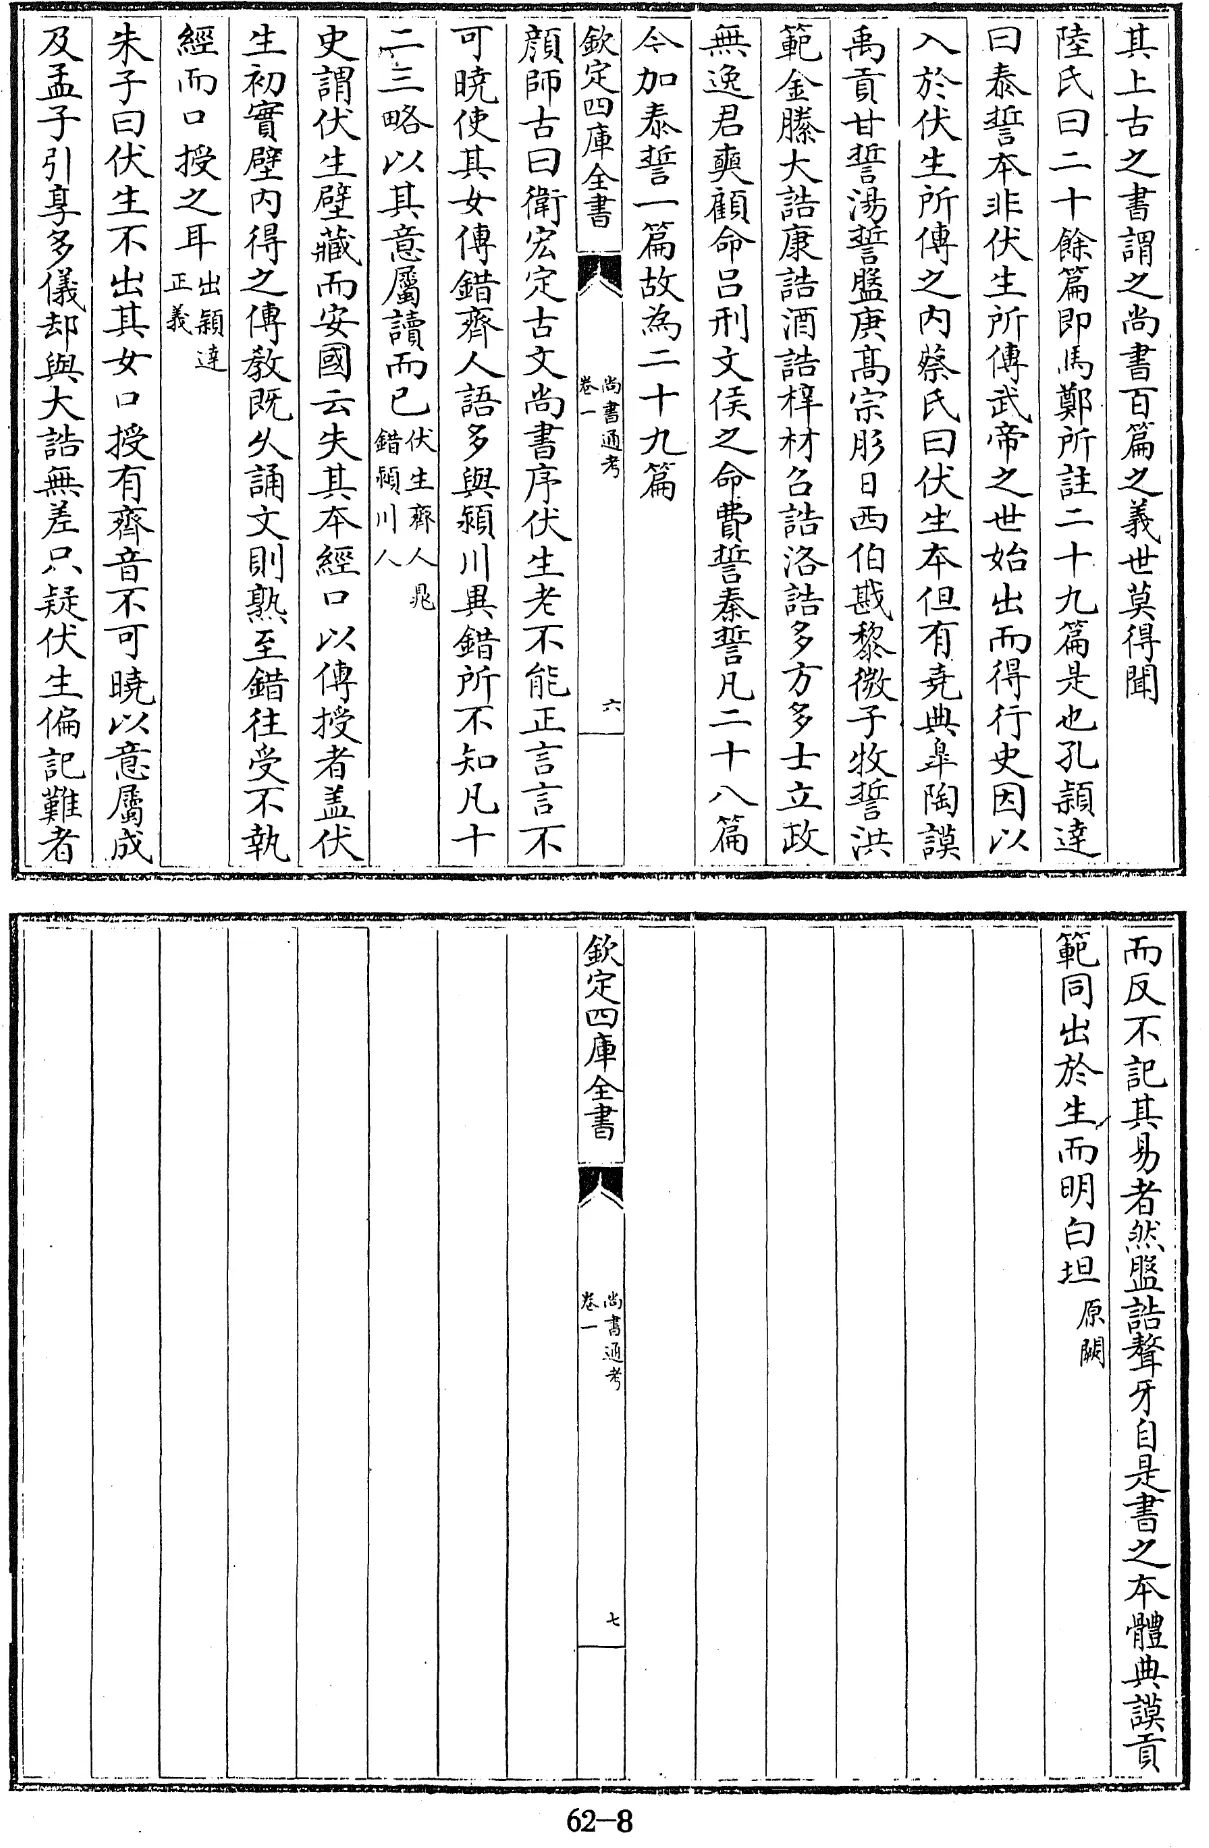 其上古之書謂之尚書百篇之義世莫得聞
陸氏曰二十餘篇即馬鄭所註二十九篇是也孔穎達
曰泰誓本非伏生所傳武帝之世始出而得行史因以
入於伏生所傳之內蔡氏曰伏生本但有堯典臯陶謨
禹貢甘誓湯誓盤庚髙宗肜日西伯戡黎微子牧誓洪
範金縢大誥康誥酒誥梓材召誥洛誥多方多士立政
無逸君奭顧命吕刑文侯之命費誓秦誓凡二十八篇
今加泰誓一篇故為二十九篇
欽定四庫全書
尚書通考
卷一
六
顔師古曰衛宏定古文尚書序伏生老不能正言言不
可曉使其女傳錯齊人語多與潁川異錯所不知凡十
二三略以其意屬讀而已伏生齊人晁
錯潁川人
史謂伏生壁藏而安國云失其本經口以傳授者盖伏
生初實壁内得之傳教既久誦文則熟至錯往受不執
經而口授之耳出穎達
正義
朱子曰伏生不出其女口授有齊音不可曉以意屬成
及孟子引享多儀却與大誥無差只疑伏生偏記難者
而反不記其易者然盤誥聱牙自是書之本體典謨貢
範同出於生而明白坦原闕
欽定四庫全書
尚書通考
卷一
七
62-8